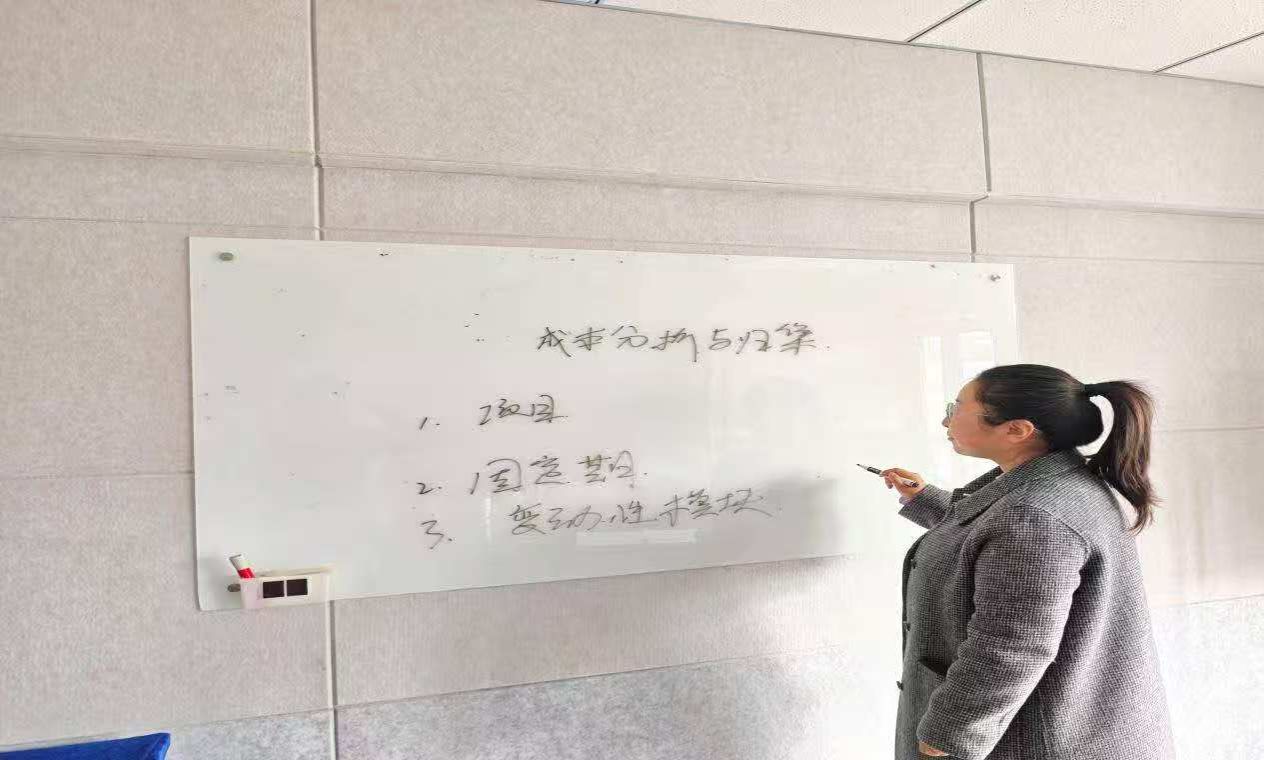 成本分析与归集.
1. 项目
2. 固定
3. 变动性模块